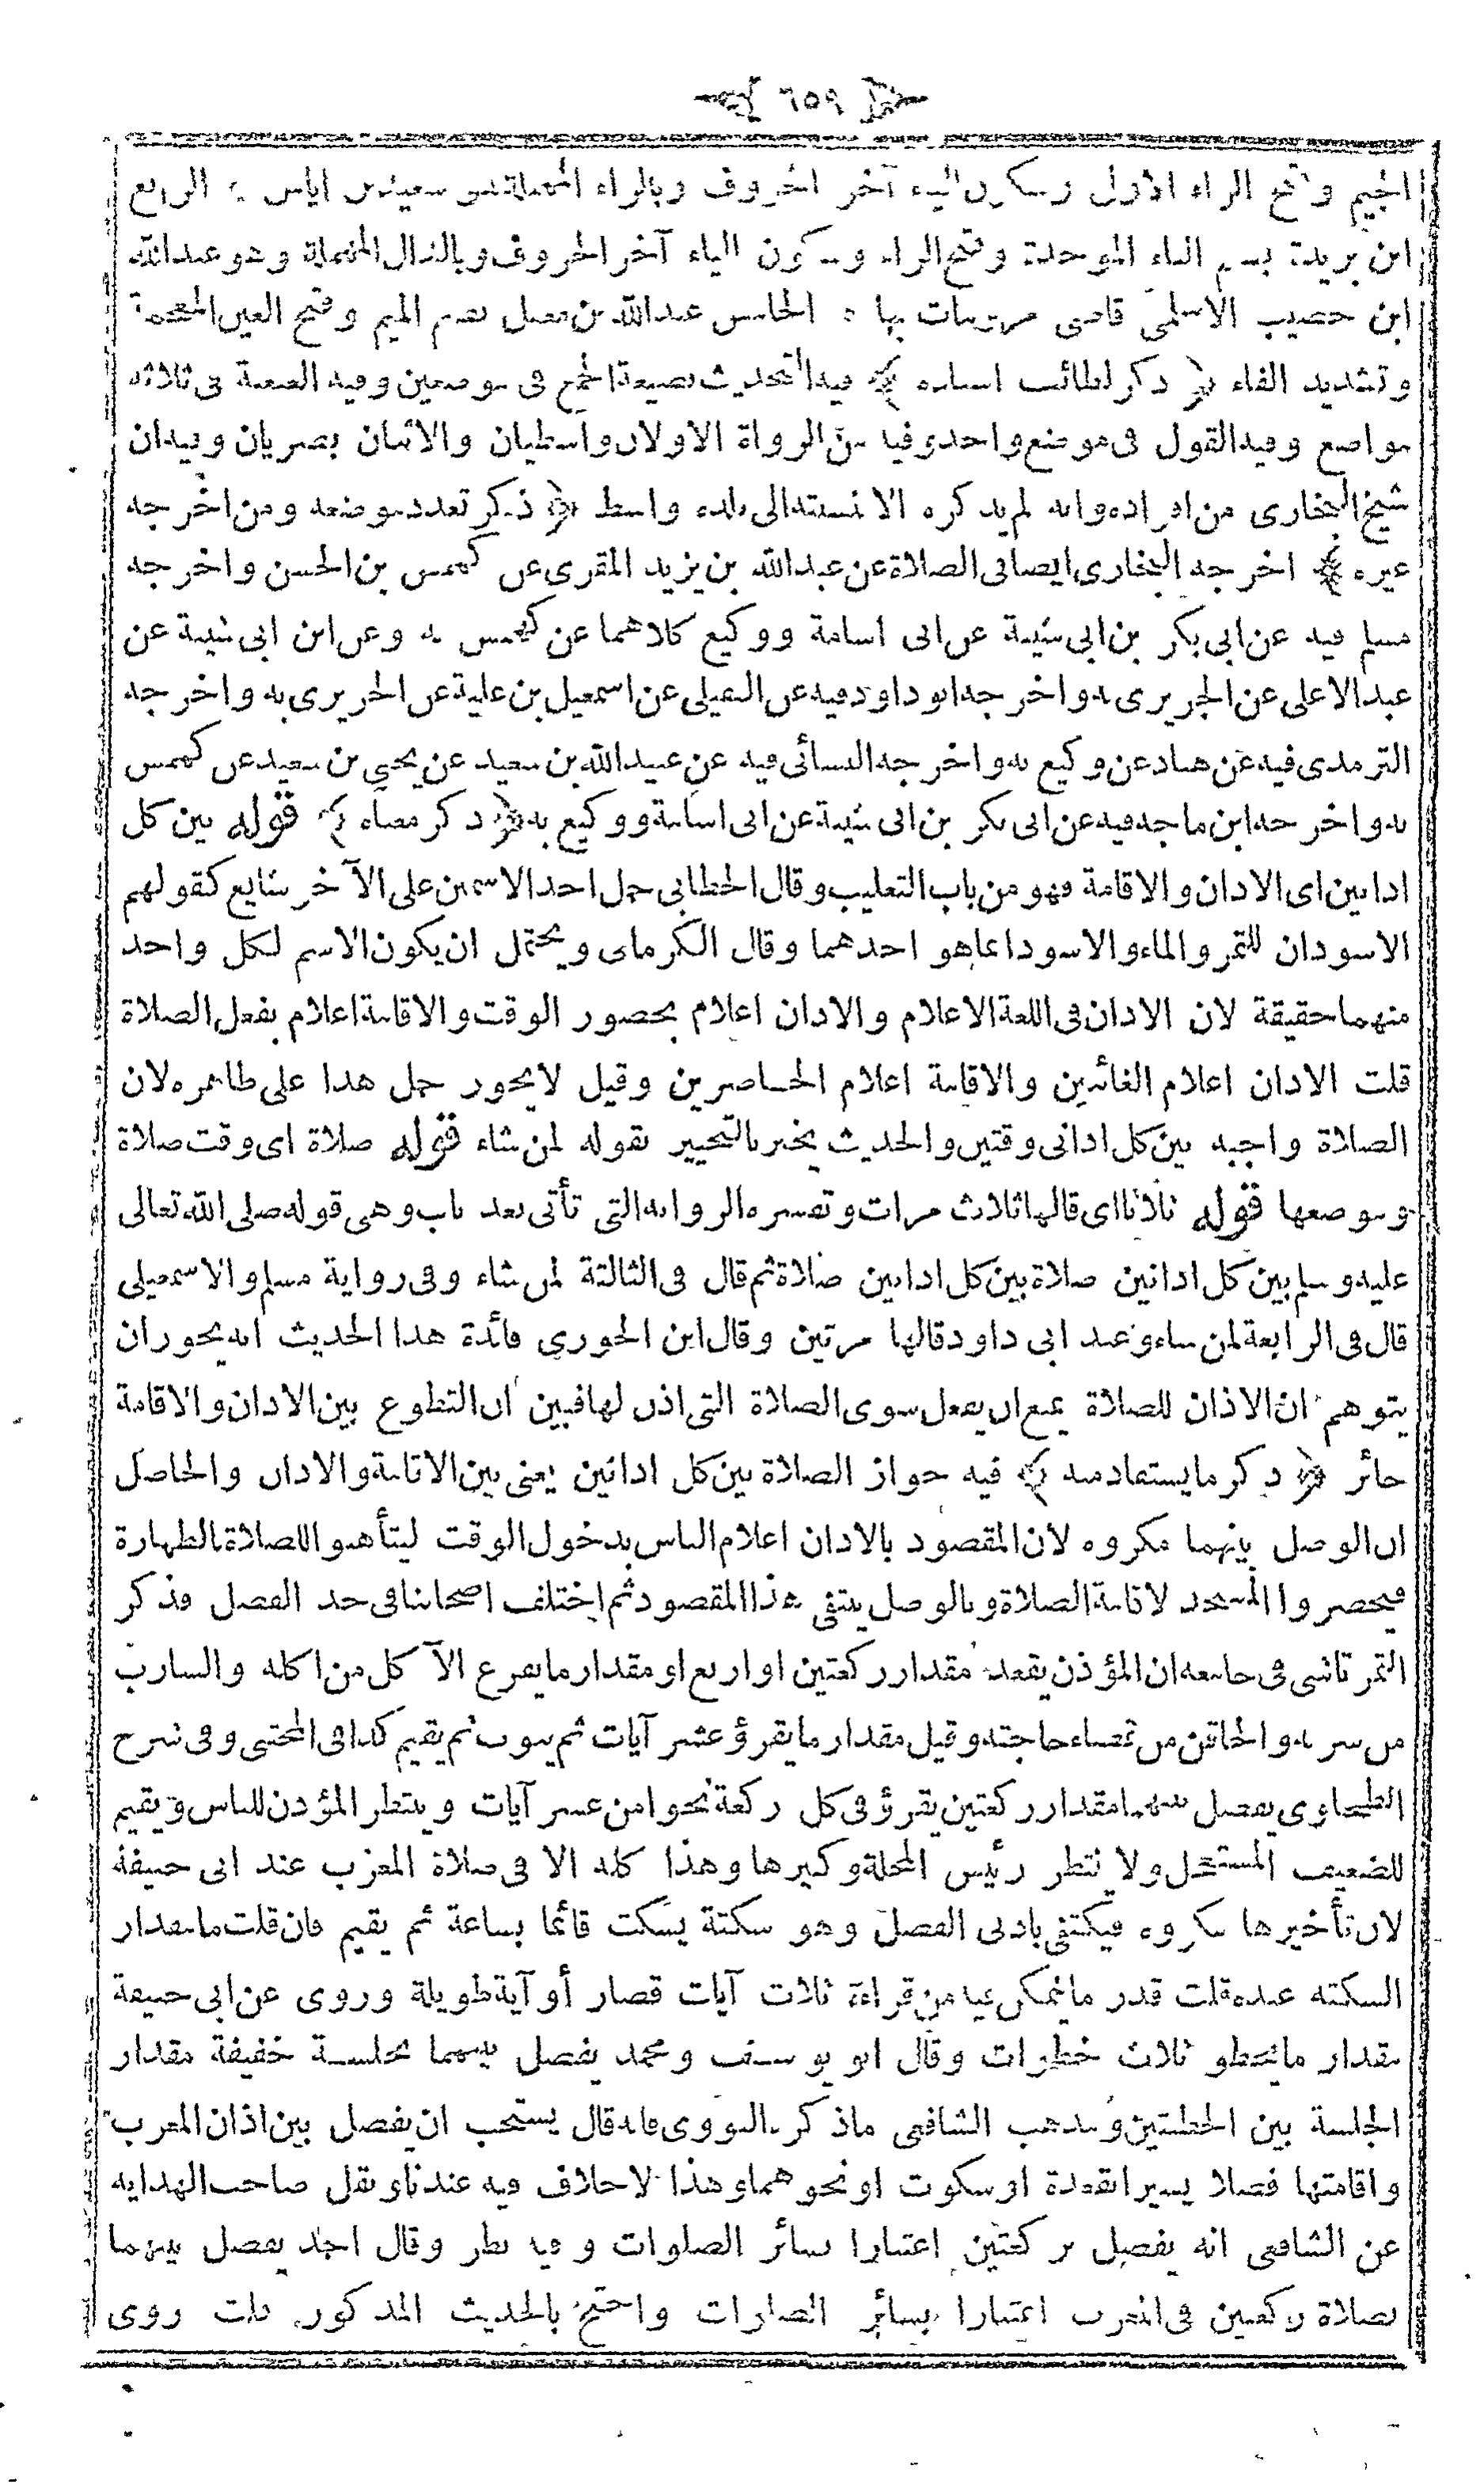 ﴿ ٦٥٩ ﴾
الجيم وفتح الراء الاولى وسكون الياء آخر الحروف وبالراء المهملة هو سعيد بن اياس . الرابع
ابن بريدة بضم الباء الموحدة وفتح الراء وسكون الياء آخر الحروف وبالدال المهملة وهو عبدالله
ابن حصيب الاسلمى قاضى مرو مات بها . الخامس عبدالله بن مغفل بضم الميم وفتح الغين المعجمة
وتشديد الفاء ﴿ ذكر لطائف اسناده ﴾ فيه التحديث بصيغة الجمع فى موضعين وفيه العنعنة فى ثلاثة
مواضع وفيه القول فى موضع واحد وفيه من الرواة الاولان واسطيان والاثنان بصريان وبيدان
شيخ البخارى من افراده وانه لم يذكره الا نسبته الى بلده واسط ﴿ ذكر تعدد موضعه ومن اخرجه
غيره ﴾ اخرجه البخارى ايضا فى الصلاة عن عبدالله بن يزيد المقرى عن كهمس بن الحسن واخرجه
مسلم فيه عن ابى بكر بن ابى شيبة عن ابى اسامة ووكيع كلاهما عن كهمس به وعن ابن ابى شيبة عن
عبدالاعلى عن الجريرى به واخرجه ابو داود فيه عن النفيلى عن اسمعيل بن علية عن الجريرى به واخرجه
الترمذى فيه عن هناد عن وكيع به واخرجه النسائى فيه عن عبيدالله بن سعيد عن يحيى بن سعيد عن كهمس
به واخرجه ابن ماجه فيه عن ابى بكر بن ابى شيبة عن ابى اسامة ووكيع به ﴿ ذكر معناه ﴾ قوله بين كل
اذانين اى الاذان والاقامة فهو من باب التغليب وقال الخطابى حمل احد الاسمين على الآخر شايع كقولهم
الاسودان للتمر والماء والاسود انما هو احدهما وقال الكرمانى ويحتمل ان يكون الاسم لكل واحد
منهما حقيقة لان الاذان فى اللغة الاعلام والاذان اعلام بحضور الوقت والاقامة اعلام بفعل الصلاة
قلت الاذان اعلام الغائبين والاقامة اعلام الحاضرين وقيل لايجوز حمل هذا على ظاهره لان
الصلاة واجبة بين كل اذانى وقتين والحديث يخبر بالتخيير بقوله لمن شاء قوله صلاة اى وقت صلاة
وموضعها قوله ثلاثا اى قالها ثلاث مرات وتفسره الرواية التى تأتى بعد باب وهى قوله صلى الله تعالى
عليه وسلم بين كل اذانين صلاة بين كل اذانين صلاة ثم قال فى الثالثة لمن شاء وفى رواية مسلم والاسمعيلى
قال فى الرابعة لمن شاء وعند ابى داود قالها مرتين وقال ابن الجوزى فائدة هذا الحديث انه يجوز ان
يتوهم ان الاذان للصلاة يمنع ان يفعل سوى الصلاة التى اذن لها فبين ان التطوع بين الاذان والاقامة
جائز ﴿ ذكر ما يستفاد منه ﴾ فيه جواز الصلاة بين كل اذانين يعنى بين الاقامة والاذان والحاصل
ان الوصل بينهما مكروه لان المقصود بالاذان اعلام الناس بدخول الوقت ليتأهبوا للصلاة بالطهارة
فيحضروا المسجد لاقامة الصلاة وبالوصل ينتفى هذا المقصود ثم اختلف اصحابنا فى حد الفصل فذكر
التمرتاشى فى جامعه ان المؤذن يقعد مقدار ركعتين او اربع او مقدار ما يفرغ الآكل من اكله والشارب
من شربه والحاقن من قضاء حاجته وقيل مقدار ما يقرؤ عشر آيات ثم يثوب ثم يقيم كذا فى المجتبى وفى شرح
الطحاوى يفصل بينهما مقدار ركعتين يقرؤ فى كل ركعة نحوا من عشر آيات وينتظر المؤذن للناس ويقيم
للضعيف المستعجل ولا ينتظر رئيس المحلة وكبيرها وهذا كله الا فى صلاة المغرب عند ابى حنيفة
لان تأخيرها مكروه فيكتفى بادنى الفصل وهو سكتة يسكت قائما بساعة ثم يقيم فان قلت ما مقدار
السكتة عنده قلت قدر ما يتمكن فيه من قراءة ثلاث آيات قصار أو آية طويلة وروى عن ابى حنيفة
مقدار ما يخطو ثلاث خطوات وقال ابو يوسف ومحمد يفصل بينهما بجلسة خفيفة مقدار
الجلسة بين الخطبتين ومذهب الشافعى ماذكره النووى فانه قال يستحب ان يفصل بين اذان المغرب
واقامتها فصلا يسيرا بقعدة او سكوت او نحوهما وهذا لاخلاف فيه عندنا ونقل صاحب الهدايه
عن الشافعى انه يفصل بركعتين اعتبارا بسائر الصلوات وفيه نظر وقال احمد يفصل بينهما
بصلاة ركعتين فى المغرب اعتبارا بسائر الصلوات واحتج بالحديث المذكور قلت روى